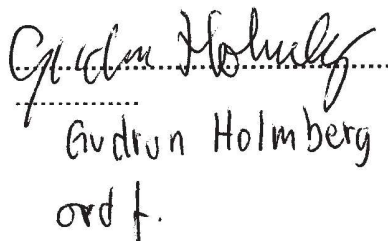 Gudrun Holmberg
Gudrun Holmberg
ord f.